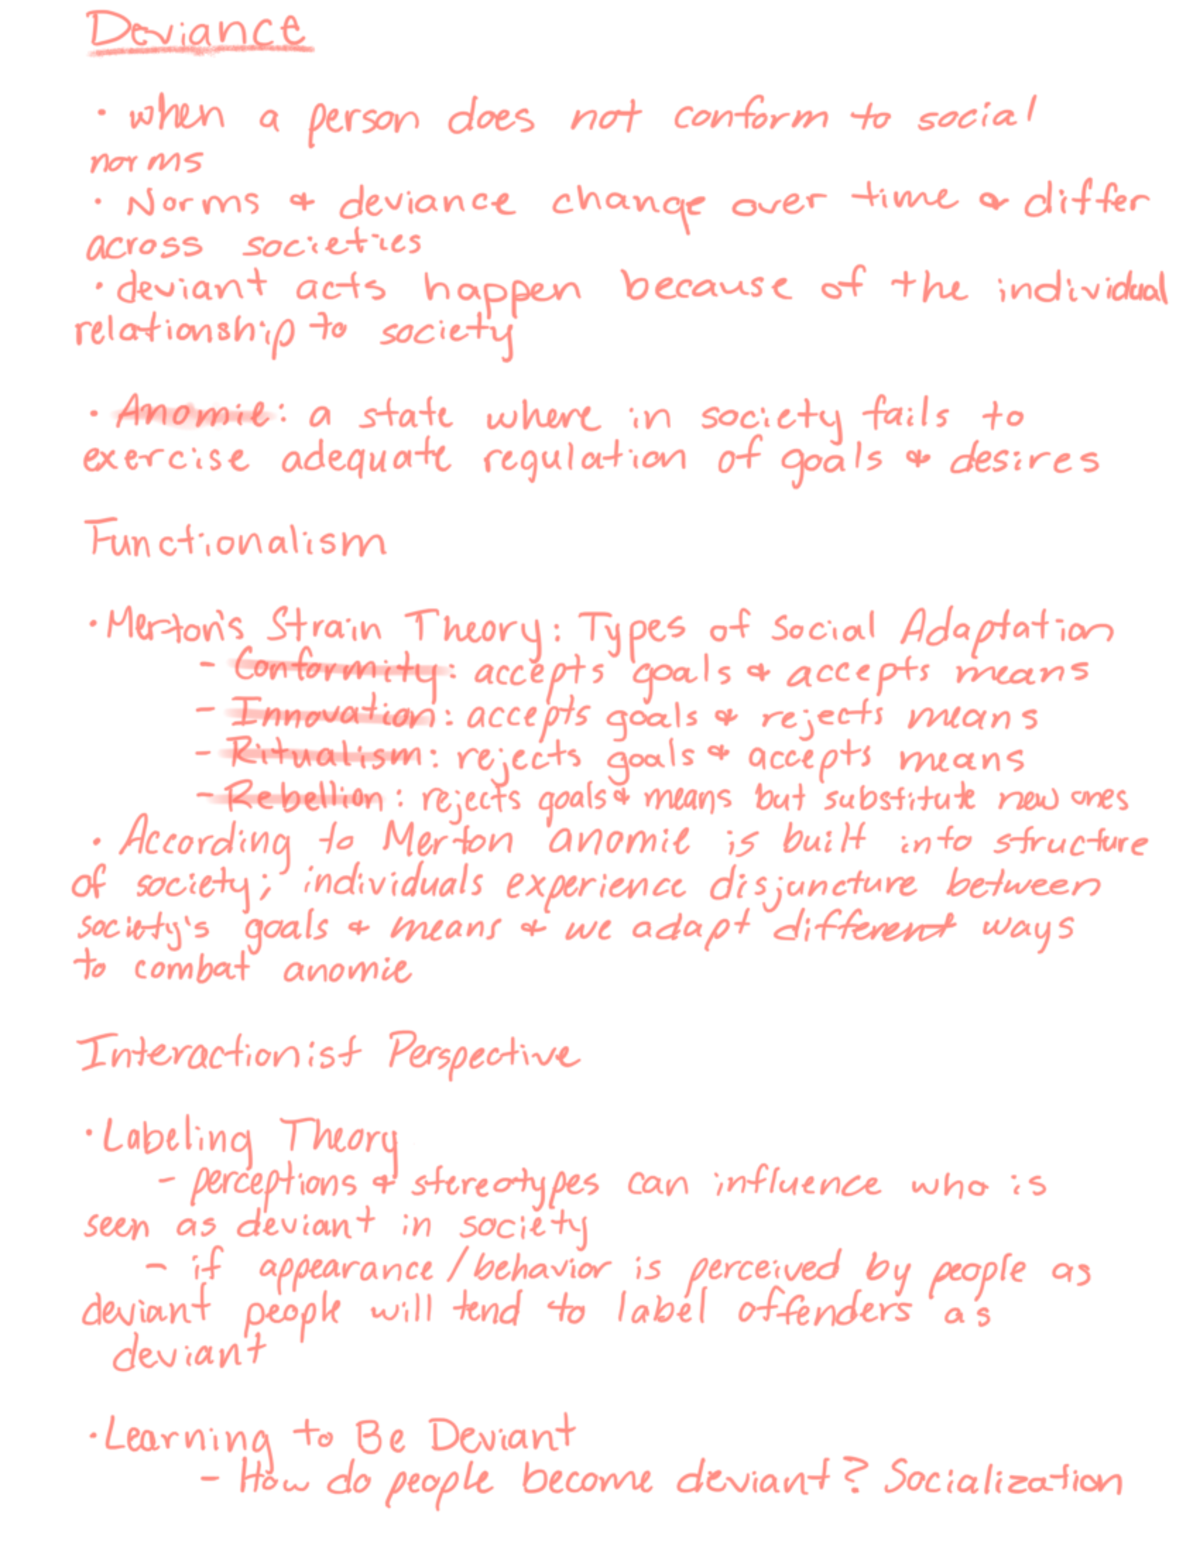 Deviance
• when a person does not conform to social
norms
• Norms & deviance change over time & differ
across societies
• deviant acts happen because of the individual
relationship to society
• Anomie: a state where in society fails to
exercise adequate regulation of goals & desires
Functionalism
• Merton's Strain Theory: Types of Social Adaptation
- Conformity: accepts goals & accepts means
- Innovation: accepts goals & rejects means
- Ritualism: rejects goals & accepts means
- Rebellion: rejects goals & means but substitute new ones
• According to Merton anomie is built into structure
of society; individuals experience disjuncture between
society's goals & means & we adapt different ways
to combat anomie
Interactionist Perspective
• Labeling Theory
- perceptions & stereotypes can influence who is
seen as deviant in society
- if appearance/behavior is perceived by people as
deviant people will tend to label offenders as
deviant
• Learning to Be Deviant
- How do people become deviant? Socialization